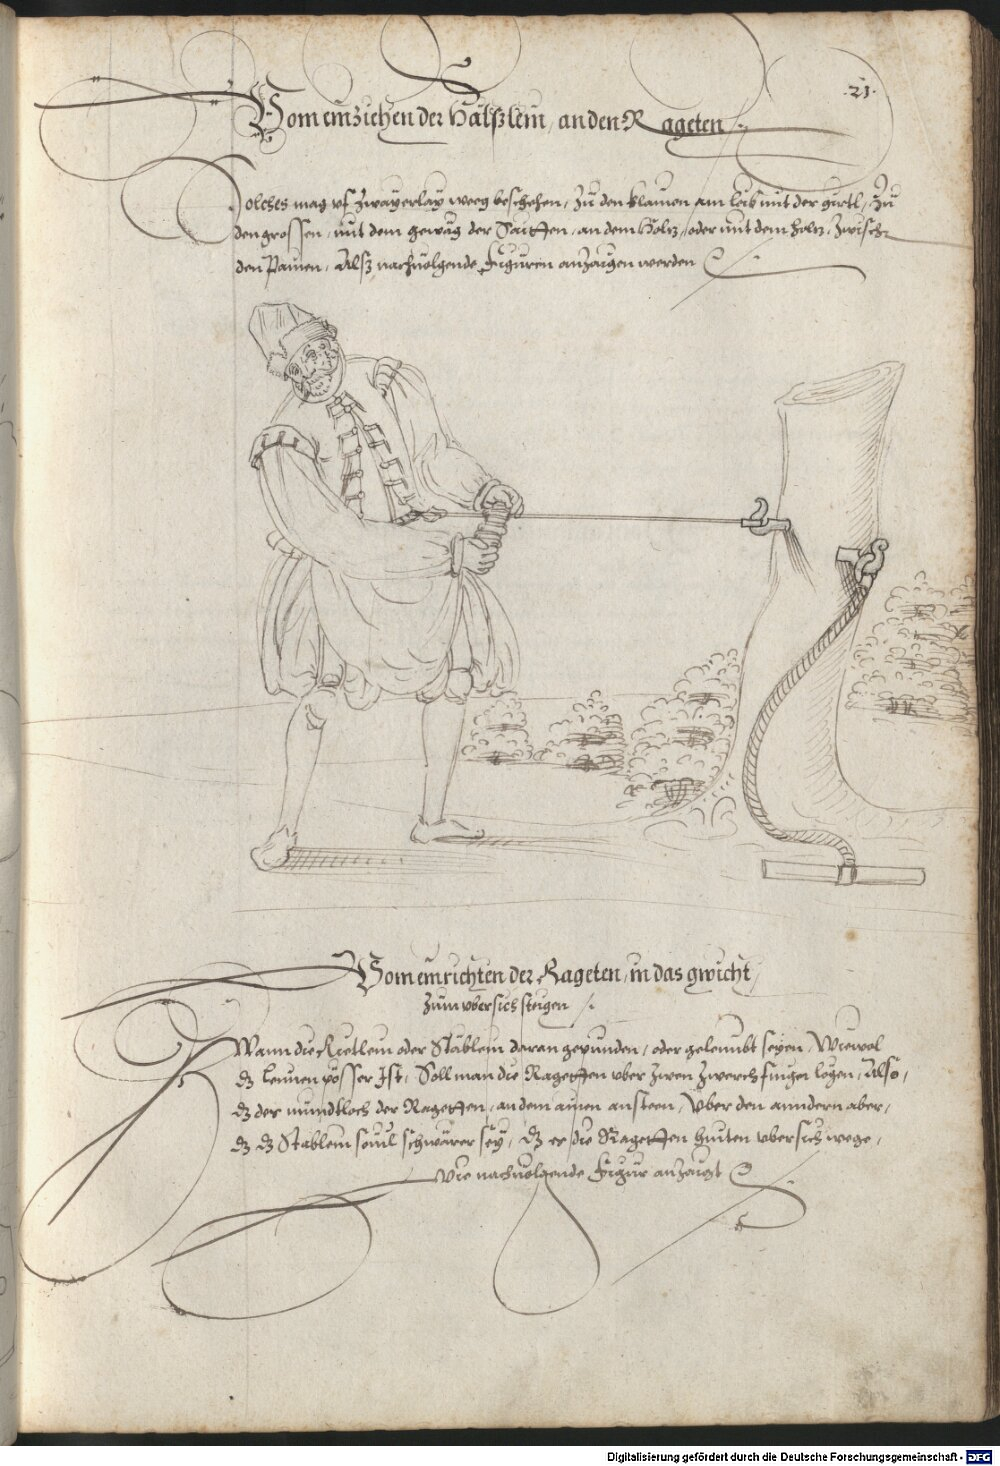 .21.
Vom einziehen der Hälßlein, an den Rageten
Solches mag vf Zwayerlay weeg beschehen, Zu den klainen am leib mit der gürtl, Zu
den grossen, mit dem gewäg der Saitten, an dem Holtz, oder mit dem holtz, Zwischen
den Painen, Alß nachuolgende Figuren anzaigen werden
Vom einrichten der Rageten, in das gwicht,
Zum vbersich steigen
Wann die Rietlein oder Stäblein daran gepunden, oder geleimbt seyen, Wiewol
dz leimen pösser Ist, Soll man die Ragetten vber Zwen Zwerch finger legen, Also,
dz der mundtloch der Ragetten, an dem ainen ansteen, Vber den anndern aber,
dz dz Stäblein souil schwärer sey, dz er die Ragetten hinten vbersich wege,
wie nachuolgende Figur anzaigt
Digitalisierung gefördert durch die Deutsche Forschungsgemeinschaft - DFG